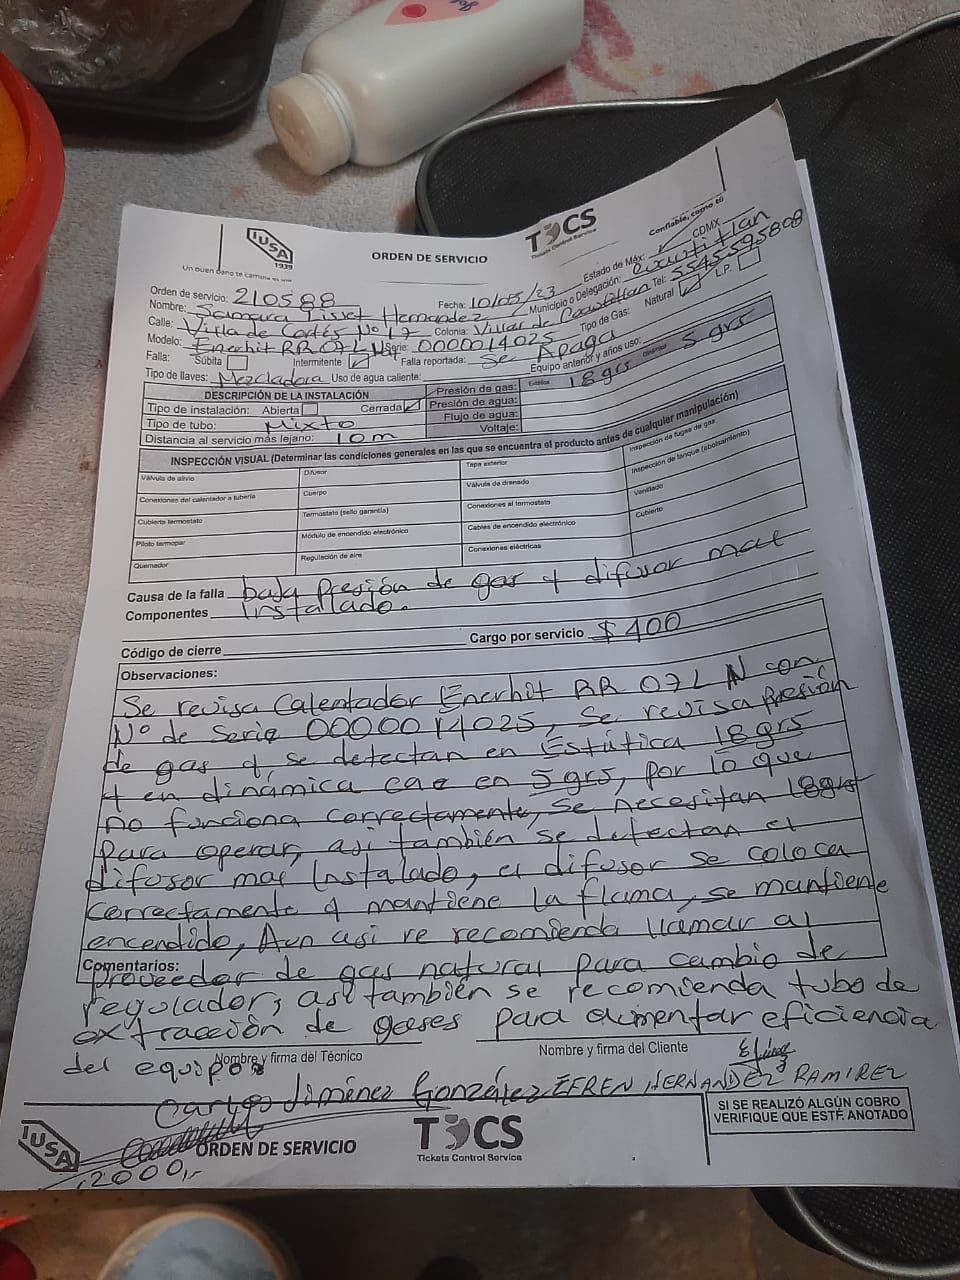 IUSA
1939
Un buen baño te cambia
ORDEN DE SERVICIO
TCS
Tickets Control Service
Confiable, como tú
Orden de servicio: 210588
Fecha: 10/05/23
Estado de Méx: CDMX
Nombre: Samara Lisset Hernandez
Municipio o Delegación: Cuautitlan
Calle: Villa de Cortés Nº 17 Colonia: Villas de Cuautitlan Tel: 5545595808
Modelo: Enerhit RR 07L N Serie: 0000014025 Tipo de Gas: Natural L.P.
Falla: Súbita Intermitente Falla reportada: Se Apaga
Tipo de llaves: Mezcladora Uso de agua caliente: Equipo anterior y años uso:
DESCRIPCIÓN DE LA INSTALACIÓN
Presión de gas: Estática 18 grs Dinámica 5 grs
Tipo de instalación: Abierta Cerrada
Presión de agua:
Tipo de tubo: Mixto
Flujo de agua:
Distancia al servicio más lejano: 10m
Voltaje:
INSPECCIÓN VISUAL (Determinar las condiciones generales en las que se encuentra el producto antes de cualquier manipulación)
Válvula de alivio Difusor Tapa exterior Inspección de fugas de gas
Conexiones del calentador a tubería Cuerpo Válvula de drenado Inspección de tanque (abolsamiento)
Cubierta termostato Termostato (sello garantía) Conexiones al termostato Ventilado
Piloto termopar Módulo de encendido electrónico Cables de encendido electrónico Cubierto
Quemador Regulación de aire Conexiones eléctricas
Causa de la falla baja presión de gas y difusor mal
Componentes Instalado.
Código de cierre Cargo por servicio $ 400
Observaciones:
Se revisa Calentador Enerhit RR 07L N con
Nº de Serie 0000014025, Se revisa presión
de gas y se detectan en Estática 18 grs
y en dinámica cae en 5 grs, por lo que
no funciona correctamente, se necesitan 18grs
para operar, asi también se detectan el
difusor mal Instalado, el difusor se coloca
correctamente y mantiene la flama, se mantiene
encendido, Aun asi re recomienda llamar al
Comentarios:
proveedor de gas natural para cambio de
regulador, asi también se recomienda tubo de
extracción de gases para aumentar eficiencia
del equipo.
Nombre y firma del Técnico
Nombre y firma del Cliente
Carlos Jiménez González
EFREN HERNANDEZ RAMIREZ
SI SE REALIZÓ ALGÚN COBRO
VERIFIQUE QUE ESTÉ ANOTADO
IUSA
ORDEN DE SERVICIO
TCS
Tickets Control Service